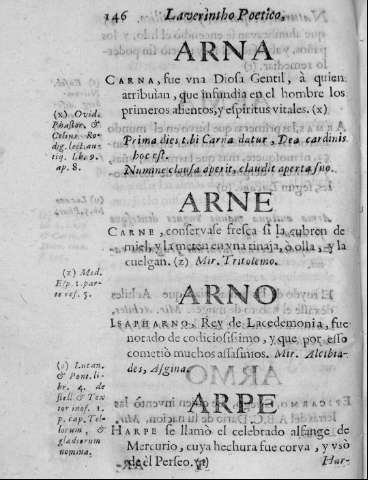 146 Laverintho Poetico,
ARNA
CARNA, fue vna Diosa Gentil, à quien
atribuìan, que infundia en el hombre los
primeros alientos, y espiritus vitales. (x)
(x) Ovid.
Phastor. &
Celius. Ro-
dig. lect. an-
tiq. Lib. 9.
ap. 8.
Prima dies tibi Carna datur, Dea cardinis
hoc est.
Numine clausa aperit, claudit aperta suo.
ARNE
CARNE, conservase fresca si la cubren de
miel, y la meten en vna tinaja, ò olla, y la
cuelgan. (z) Mir. Tritolemo.
(z) Med.
Esp. 1. par-
te fol. 5.
ARNO
ISAPHARNO, Rey de Lacedemonia, fue
notado de codiciosissimo, y que por esso
cometiò muchos assasinios. Mir. Alcibia-
des, Asgina.
ARPE
HARPE se llamò el celebrado alfange de
Mercurio, cuya hechura fue corva, y vsò
de èl Perseo.
Lucan.
& Pont. li-
br. 4. de
stell. & Tex
tor inof. 1.
p. cap. Tel-
lorum, &
gladiorum
nomina.
Har-